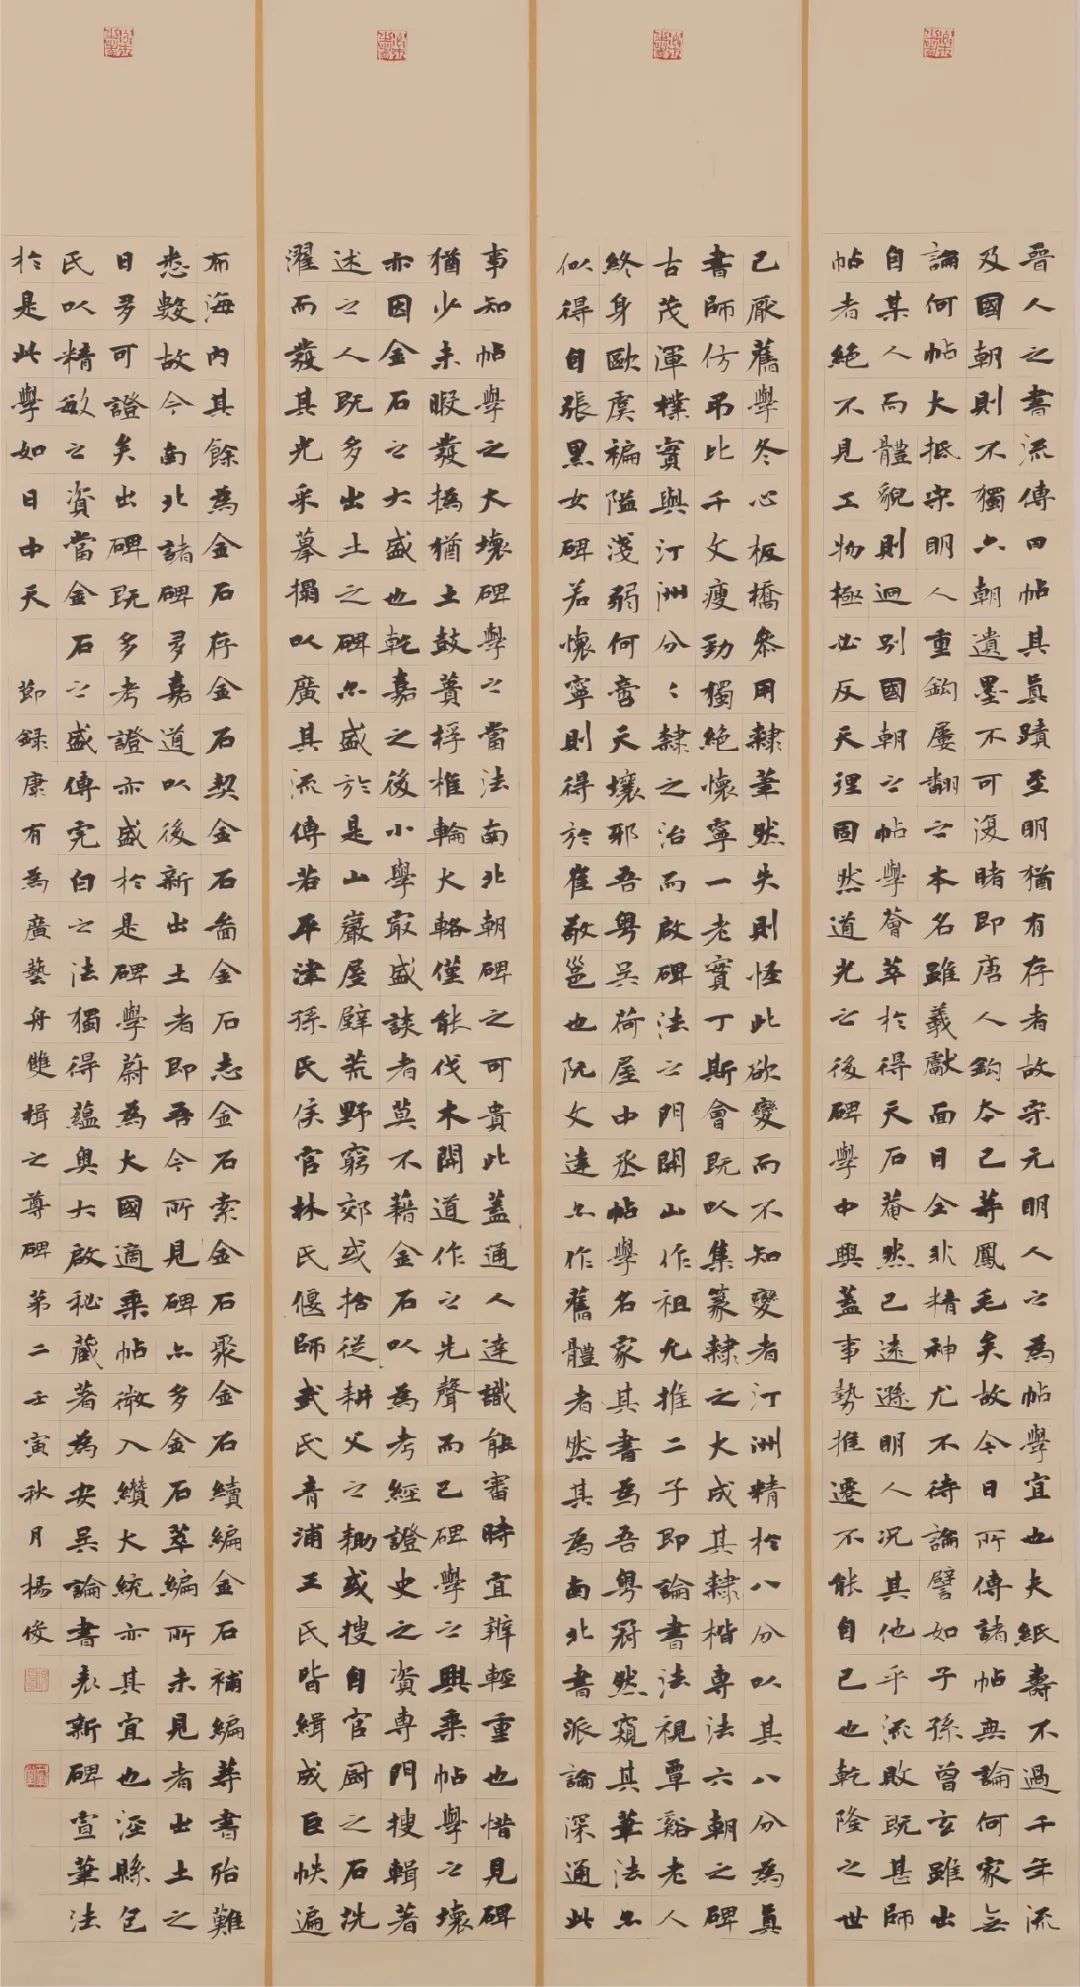 晉人之書流傳曰帖其真蹟至明猶有存者故宋元明人之為帖學宜也夫紙壽不過千年流
及國朝則不獨六朝遺墨不可復睹即唐人鈎本已等鳳毛矣故今日所傳諸帖無論何家無
論何帖大抵宋明人重鈎屢翻之本名雖羲獻面目全非精神尤不待論譬如子孫曾玄雖出
自某人而體貌則迥別國朝之帖學薈萃於得天石菴然已遠遜明人況其他乎流敗既甚師
帖者絕不見工物極必反天理固然道光之後碑學中興蓋事勢推遷不能自已也乾隆之世
已厭舊學冬心板橋參用隸筆然失則怪此欲變而不知變者汀洲精於八分以其八分為真
書師仿吊比干文瘦勁獨絕懷寧一老實丁斯會既以集篆隸之大成其隸楷專法六朝之碑
古茂渾樸實與汀洲分〻隸之治而啟碑法之門開山作祖允推二子即論書法視覃谿老人
終身歐虞褊隘淺弱何啻天壤邪吾粵吳荷屋中丞帖學名家其書為吾粵冠然窺其筆法亦
似得自張黑女碑若懷寧則得於崔敬邕也阮文達亦作舊體者然其為南北書派論深通此
事知帖學之大壞碑學之當法南北朝碑之可貴此蓋通人達識能審時宜辨輕重也惜見碑
猶少未暇發撝猶土鼓蕢桴椎輪大輅僅能伐木開道作之先聲而已碑學之興乘帖學之壞
亦因金石之大盛也乾嘉之後小學最盛談者莫不藉金石以為考經證史之資專門搜輯著
述之人既多出土之碑亦盛於是山巖屋壁荒野窮郊或拾從耕父之鋤或搜自官厨之石洗
濯而發其光采摹搨以廣其流傳若平津孫氏侯官林氏偃師武氏青浦王氏皆緝成巨帙遍
布海內其餘為金石存金石契金石圖金石志金石索金石聚金石續編金石補編等書殆難
悉數故今南北諸碑多嘉道以後新出土者即吾今所見碑亦多金石萃編所未見者出土之
日多可證矣出碑既多考證亦盛於是碑學蔚為大國適乘帖微入纘大統亦其宜也涇縣包
氏以精敏之資當金石之盛傳完白之法獨得蘊奧大啟秘藏著為安吳論書表新碑宣筆法
於是此學如日中天 節錄康有為廣藝舟雙楫之尊碑第二壬寅秋月楊俊